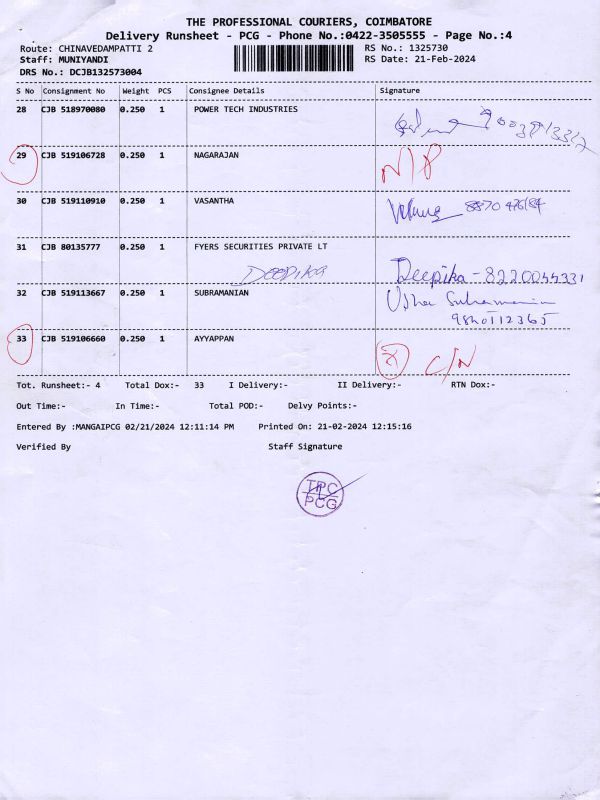 THE PROFESSIONAL COURIERS, COIMBATORE
Delivery Runsheet - PCG - Phone No.:0422-3505555 - Page No.:4
Route: CHINAVEDAMPATTI 2 RS No.: 1325730
Staff: MUNIYANDI RS Date: 21-Feb-2024
DRS No.: DCJB132573004
S No Consignment No Weight PCS Consignee Details Signature
28 CJB 518970080 0.250 1 POWER TECH INDUSTRIES
29 CJB 519106728 0.250 1 NAGARAJAN N/P
30 CJB 519110910 0.250 1 VASANTHA
31 CJB 80135777 0.250 1 FYERS SECURITIES PRIVATE LT
DEEPIKA Deepika - 8220044331
32 CJB 519113667 0.250 1 SUBRAMANIAN Usha Subramanian
33 CJB 519106660 0.250 1 AYYAPPAN C/N
Tot. Runsheet:- 4 Total Dox:- 33 I Delivery:- II Delivery:- RTN Dox:-
Out Time:- In Time:- Total POD:- Delvy Points:-
Entered By :MANGAIPCG 02/21/2024 12:11:14 PM Printed On: 21-02-2024 12:15:16
Verified By Staff Signature
TPC
PCG